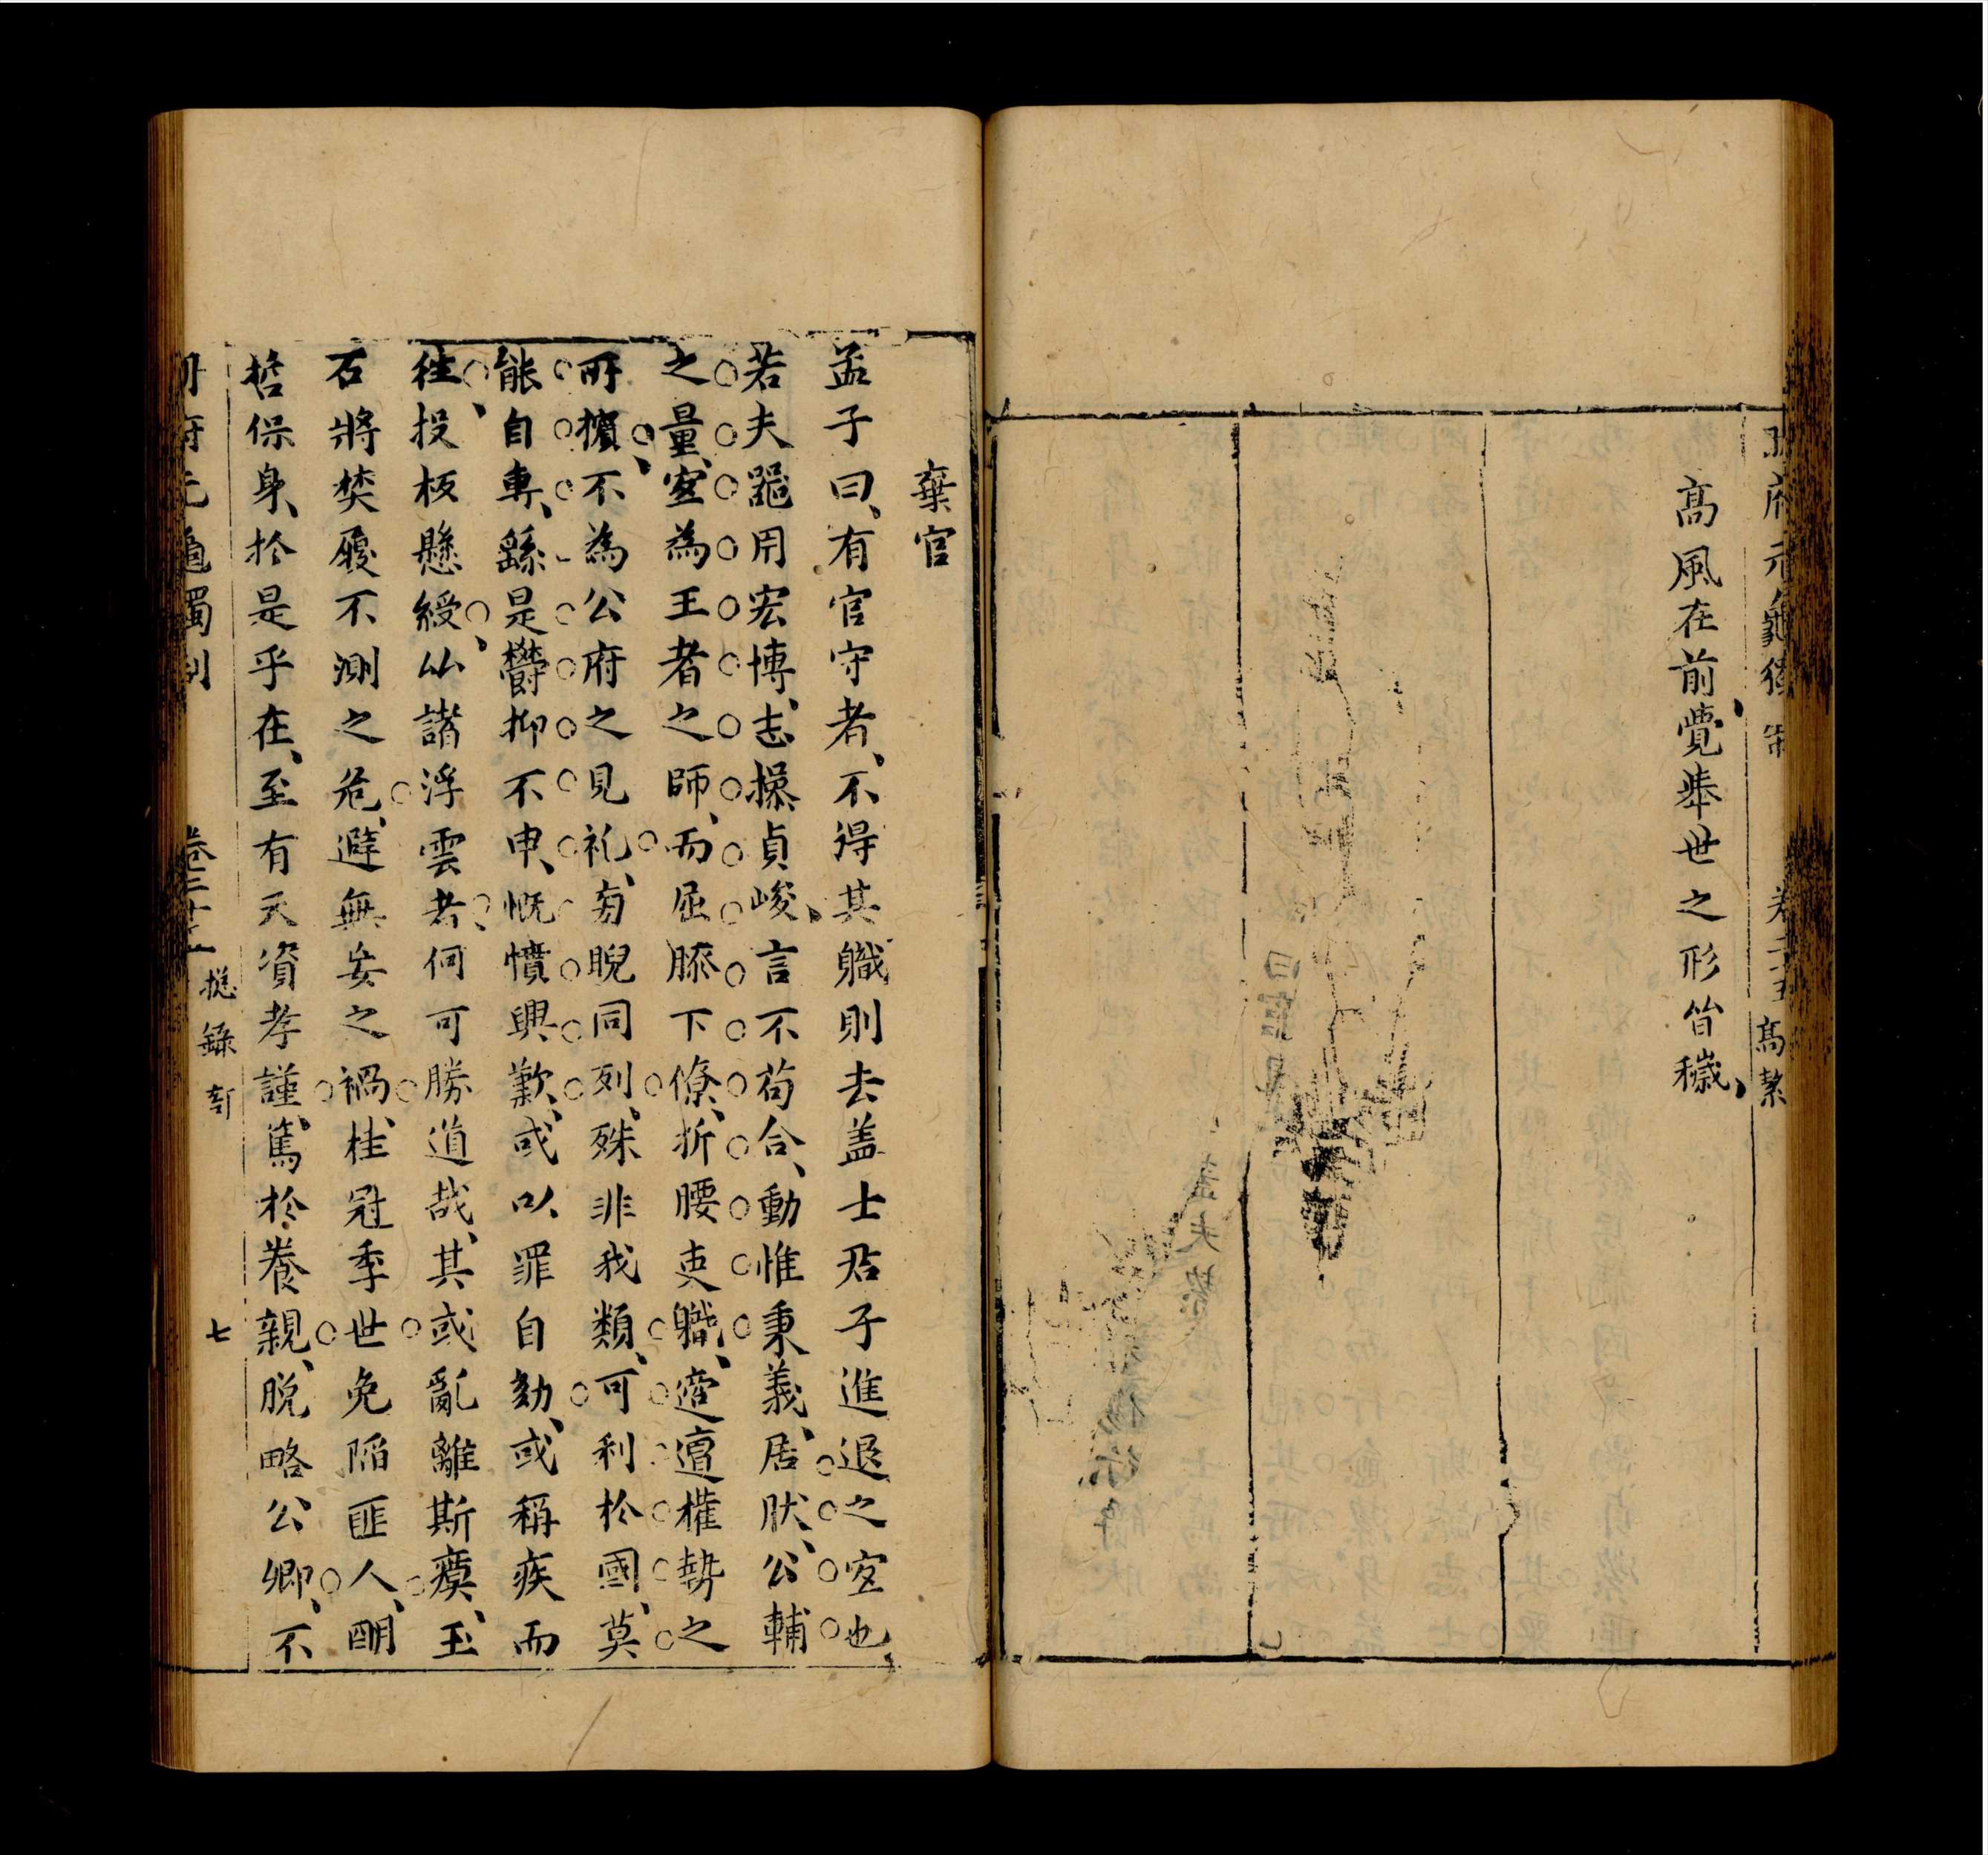 高風在前覺舉世之形皆穢
府元龜獨制 卷二十五 高潔
棄官
孟子曰有官守者不得其職則去盖士君子進退之宜也
若夫噐用宏博志操貞峻言不苟合動惟秉義居肰公輔
之量宜為王者之師而屈膝下僚折腰吏職迍邅權勢之
所擯不為公府之見礼旁睨同列殊非我類可利於國莫
能自專繇是欝抑不申慨憤興歎或以罪自劾或稱疾而
徃投板懸綬比諸浮雲者何可勝道哉其或亂離斯瘼玉
石將焚履不測之危避無妄之禍桂冠季世免陷匪人明
哲保身於是乎在至有天資孝謹篤於養親脫略公卿不
府元龜獨制 卷二十五 捴錄部 七